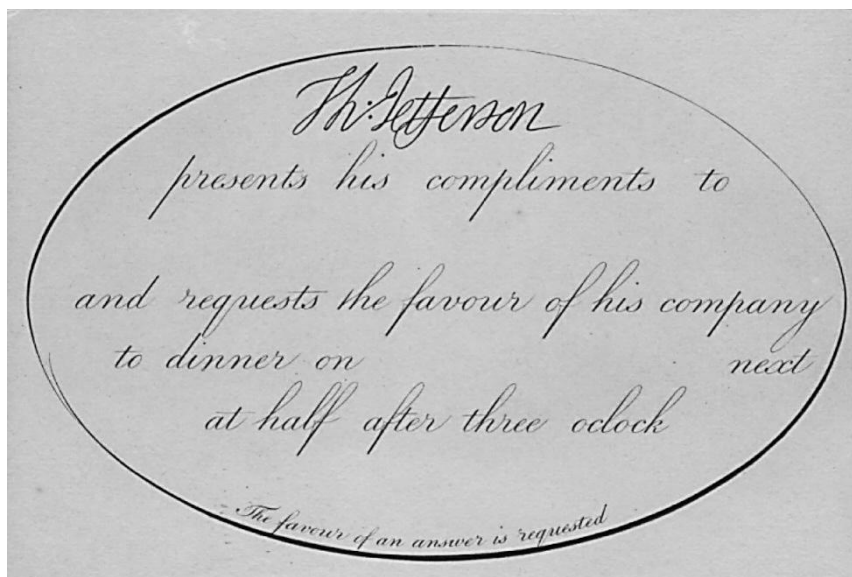 Th: Jefferson
presents his compliments to
and requests the favour of his company
to dinner on next
at half after three oclock
The favour of an answer is requested